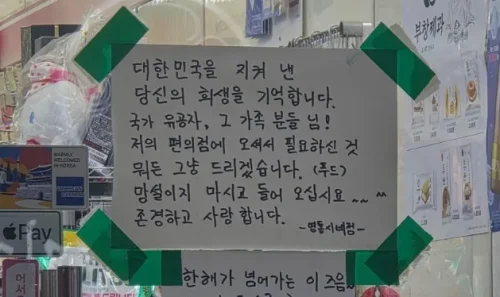 대한민국을 지켜 낸
당신의 희생을 기억합니다.
국가 유공자, 그 가족 분들 님!
저의 편의점에 오셔서 필요하신 것
뭐든 그냥 드리겠습니다. (푸드)
망설이지 마시고 들어 오십시요~~ ^^
존경하고 사랑 합니다.
-영동시네점-
한해가 넘어가는 이즈음
부창제과
WELCOMED
IN KOREA
Pay
어서